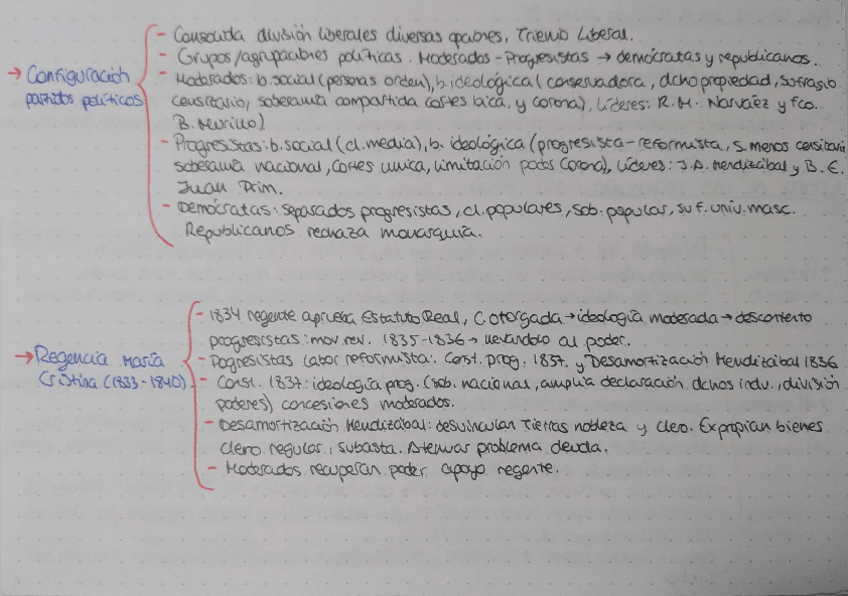 - Consolida división liberales diversas opciones, Trienio Liberal.
- Grupos/agrupaciones políticas. Moderados - Progresistas → demócratas y republicanos.
→ Configuración partidos políticos
- Moderados: b. social (personas orden), b. ideológica (conservadora, dcho propiedad, sufragio
censitario, soberanía compartida cortes bica. y corona), Líderes: R. M. Narváez y fco.
B. Murillo)
- Progresistas: b. social (cl. media), b. ideológica (progresista-reformista, S. menos censitario
soberanía nacional, Cortes única, limitación podos Corona), Líderes: J. A. Mendizábal y B. E.
Juan Prim.
- Demócratas: separados progresistas, cl. populares, sob. popular, suf. univ. masc.
Republicanos rechaza monarquía.
- 1834 regente aprueba Estatuto Real, C. otorgada → ideología moderada → descontento
progresistas: mov. rev. 1835-1836 → llevándolo al poder.
→ Regencia María Cristina (1833-1840).
- Pogresistas labor reformista: Const. prog. 1837. y Desamortización Mendizábal 1836
- Const. 1837: ideología prog. (sob. nacional, amplia declaración dchos indv., división
poderes) concesiones moderados.
- Desamortización Mendizábal: desvinculan tierras nobleza y clero. Expropian bienes
clero regular, subasta. Atenuar problema deuda.
- Moderados recuperan poder apoyo regente.